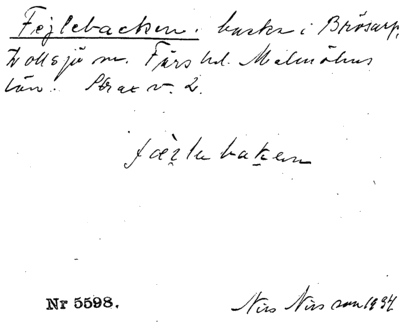 Fejlebacken. backe i Brösarp,
Tolsjö sn. Färs hd. Malmöhus
län. Strax v. 2.
fäɪ̯le bak̬en
Nr 5598.
Nils Nilsson 1934